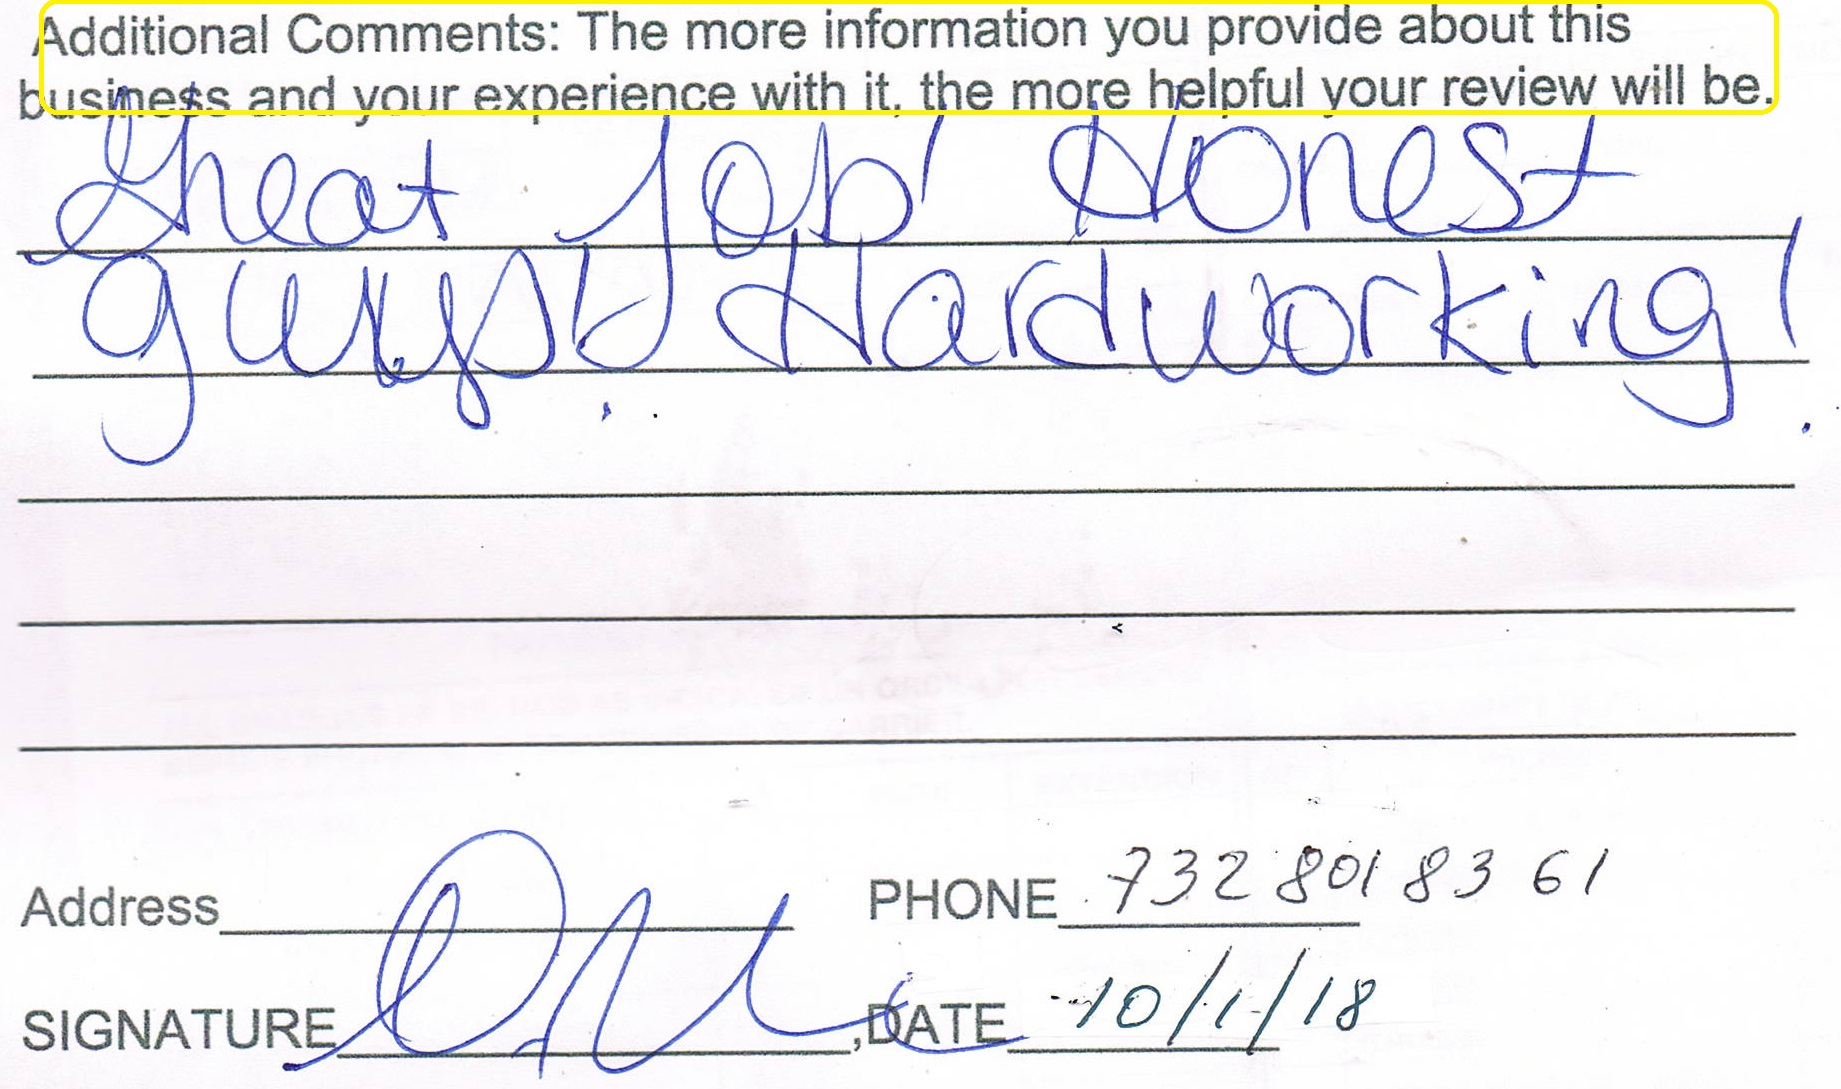 Additional Comments: The more information you provide about this
business and your experience with it, the more helpful your review will be.
Great Job! Honest
guys! Hardworking!
Address
PHONE 732 801 83 61
SIGNATURE ,DATE 10/1/18